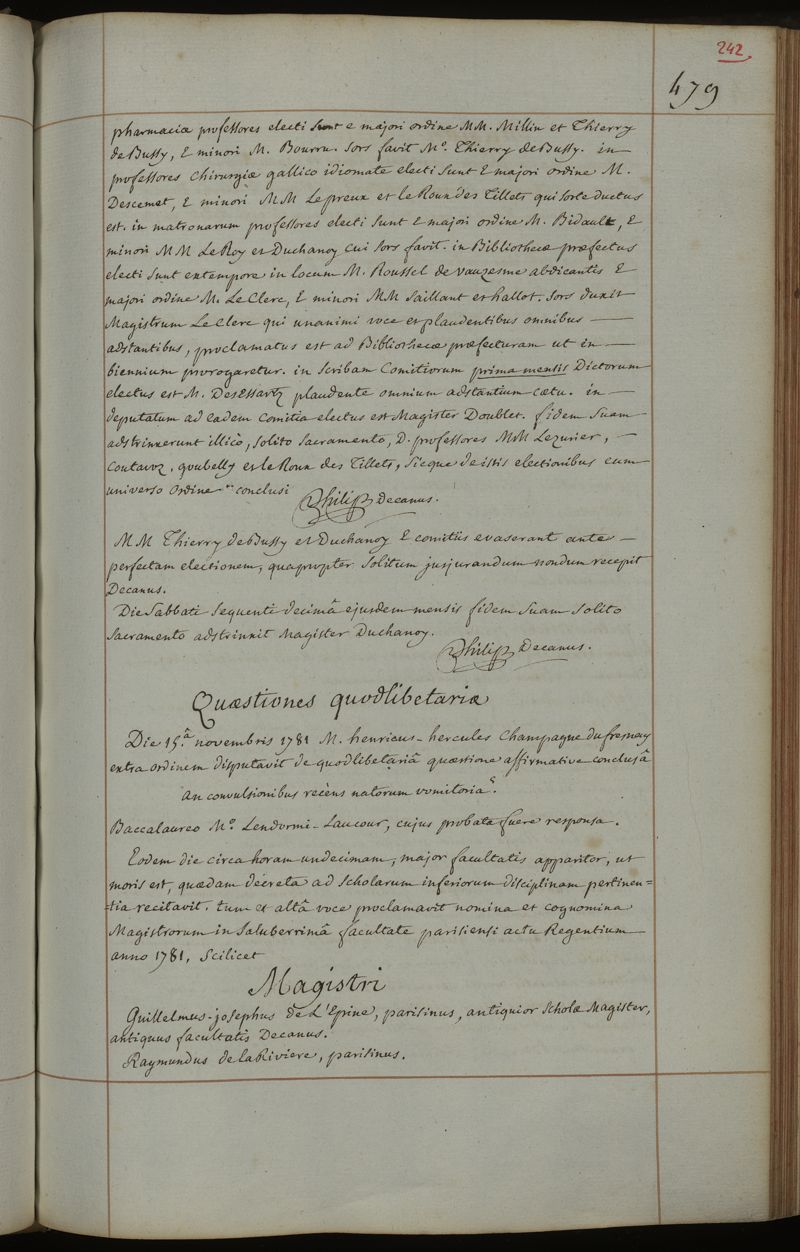 242
479
pharmaciæ professores electi sunt e majori ordine MM. Millin et Thierry
de Bussy, E minori M. Bourru. Sors favit M.º Thierry de Bussy. in
professores chirurgiæ gallico idiomate electi sunt E majori ordine M.
Descemet, E minori MM Lepreux et le Roux des Tillets qui sorte ductus
est. in matronarum professores electi sunt E majori ordine M. Bidault, E
minori MM Le Roy et Duchanoy cui sors favit. in Bibliothecæ præfectus
electi sunt extempore in locum M. Roussel de Vauzesme abdicantis E
majori ordine M. Le Clerc, E minori MM Saillant et hallot. Sors duxit
Magistrum Le Clerc qui unanimi voce et plaudentibus omnibus —
adstantibus, proclamatus est ad Bibliothecæ præfecturam ut in —
biennium prorogaretur. in Scribam Comitiorum prima mensis Dictorum
electus est M. DesEssartz plaudente omnium adstantium cætu. in —
deputatum ad eadem comitia electus est Magister Doublet. fidem suam
adstrinxerunt illicò, solito sacramento, D. professores MM Lezurier, —
Coutavoz, goubelly et le Roux des Tillets, sicque de istis electionibus cum
universo ordine conclusi
Philip Decanus.
MM Thierry de Bussy et Duchanoy E comitiis evaserant ante —
perfectam electionem, quapropter solitum jusjurandum nondum recepit
Decanus.
Die Sabbati sequenti decimâ ejusdem mensis fidem suam solito
sacramento adstrinxit Magister Duchanoy.
Philip Decanus.
Quæstiones quodlibetariæ
Die 15.ª novembris 1781 M. henricus-hercules Champagne dufresnay
extra ordinem disputavit de quodlibetariâ quæstione affirmative conclusâ
an convulsionibus recèns natorum vomitoria?
Baccalaureo M.º Lendormi-Laucour, cujus probata fuere responsa.
Eodem die circa horam undecimam, major facultatis apparitor, ut
moris est, quædam decreta ad scholarum inferiorum disciplinam pertinen=
=tia recitavit. tum et altâ voce proclamavit nomina et cognomina
Magistrorum in Saluberrimâ facultate parisiensi actu Regentium
anno 1781, Scilicet
Magistri
Guillelmus-josephus de L'Epine, parisinus, antiquior Scholæ Magister,
antiquus facultatis Decanus.
Raymundus de la Riviere, parisinus.